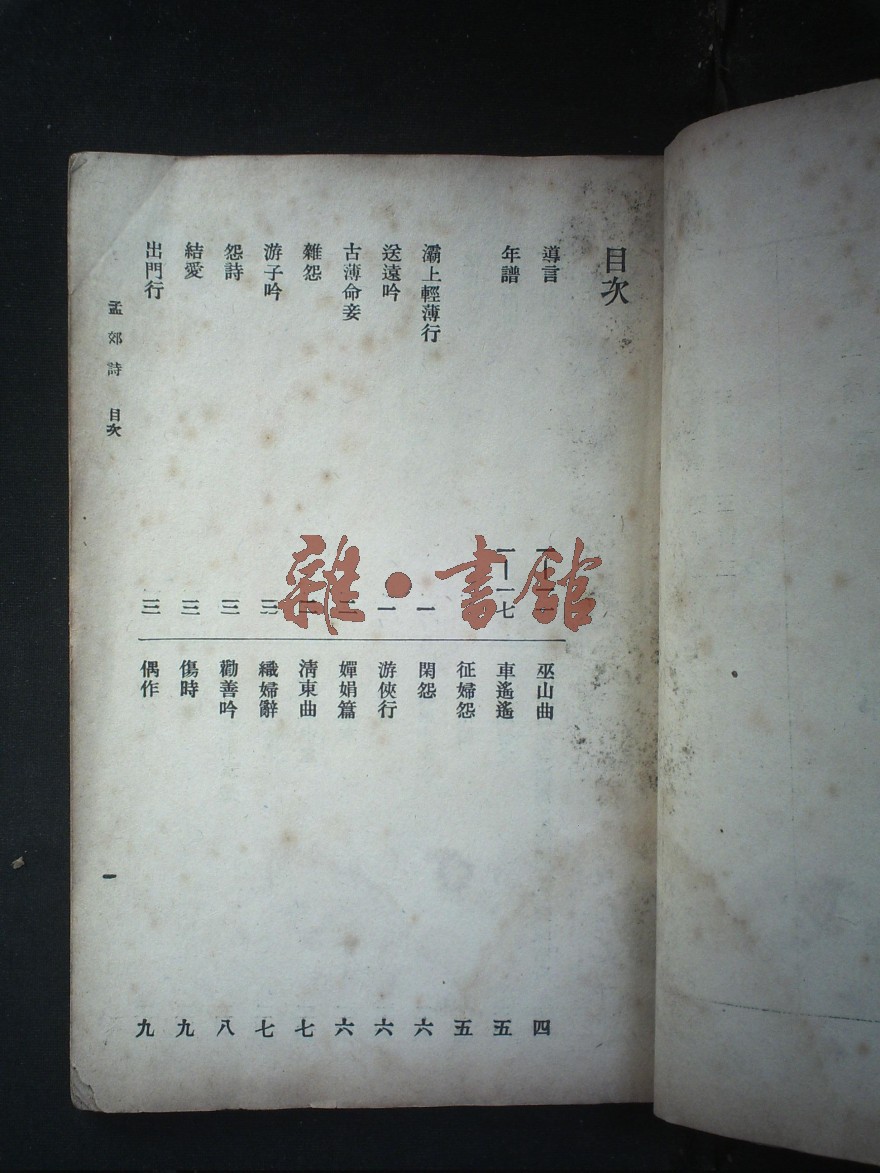 目次
導言
年譜 一—一七
灞上輕薄行 一
送遠吟 一
古薄命妾 二
雜怨 二
游子吟 三
怨詩 三
結愛 三
出門行 三
巫山曲 四
車遙遙 五
征婦怨 五
閑怨 六
游俠行 六
嬋娟篇 六
清東曲 七
織婦辭 七
勸善吟 八
傷時 九
偶作 九
孟郊詩 目次
一
雜·書館